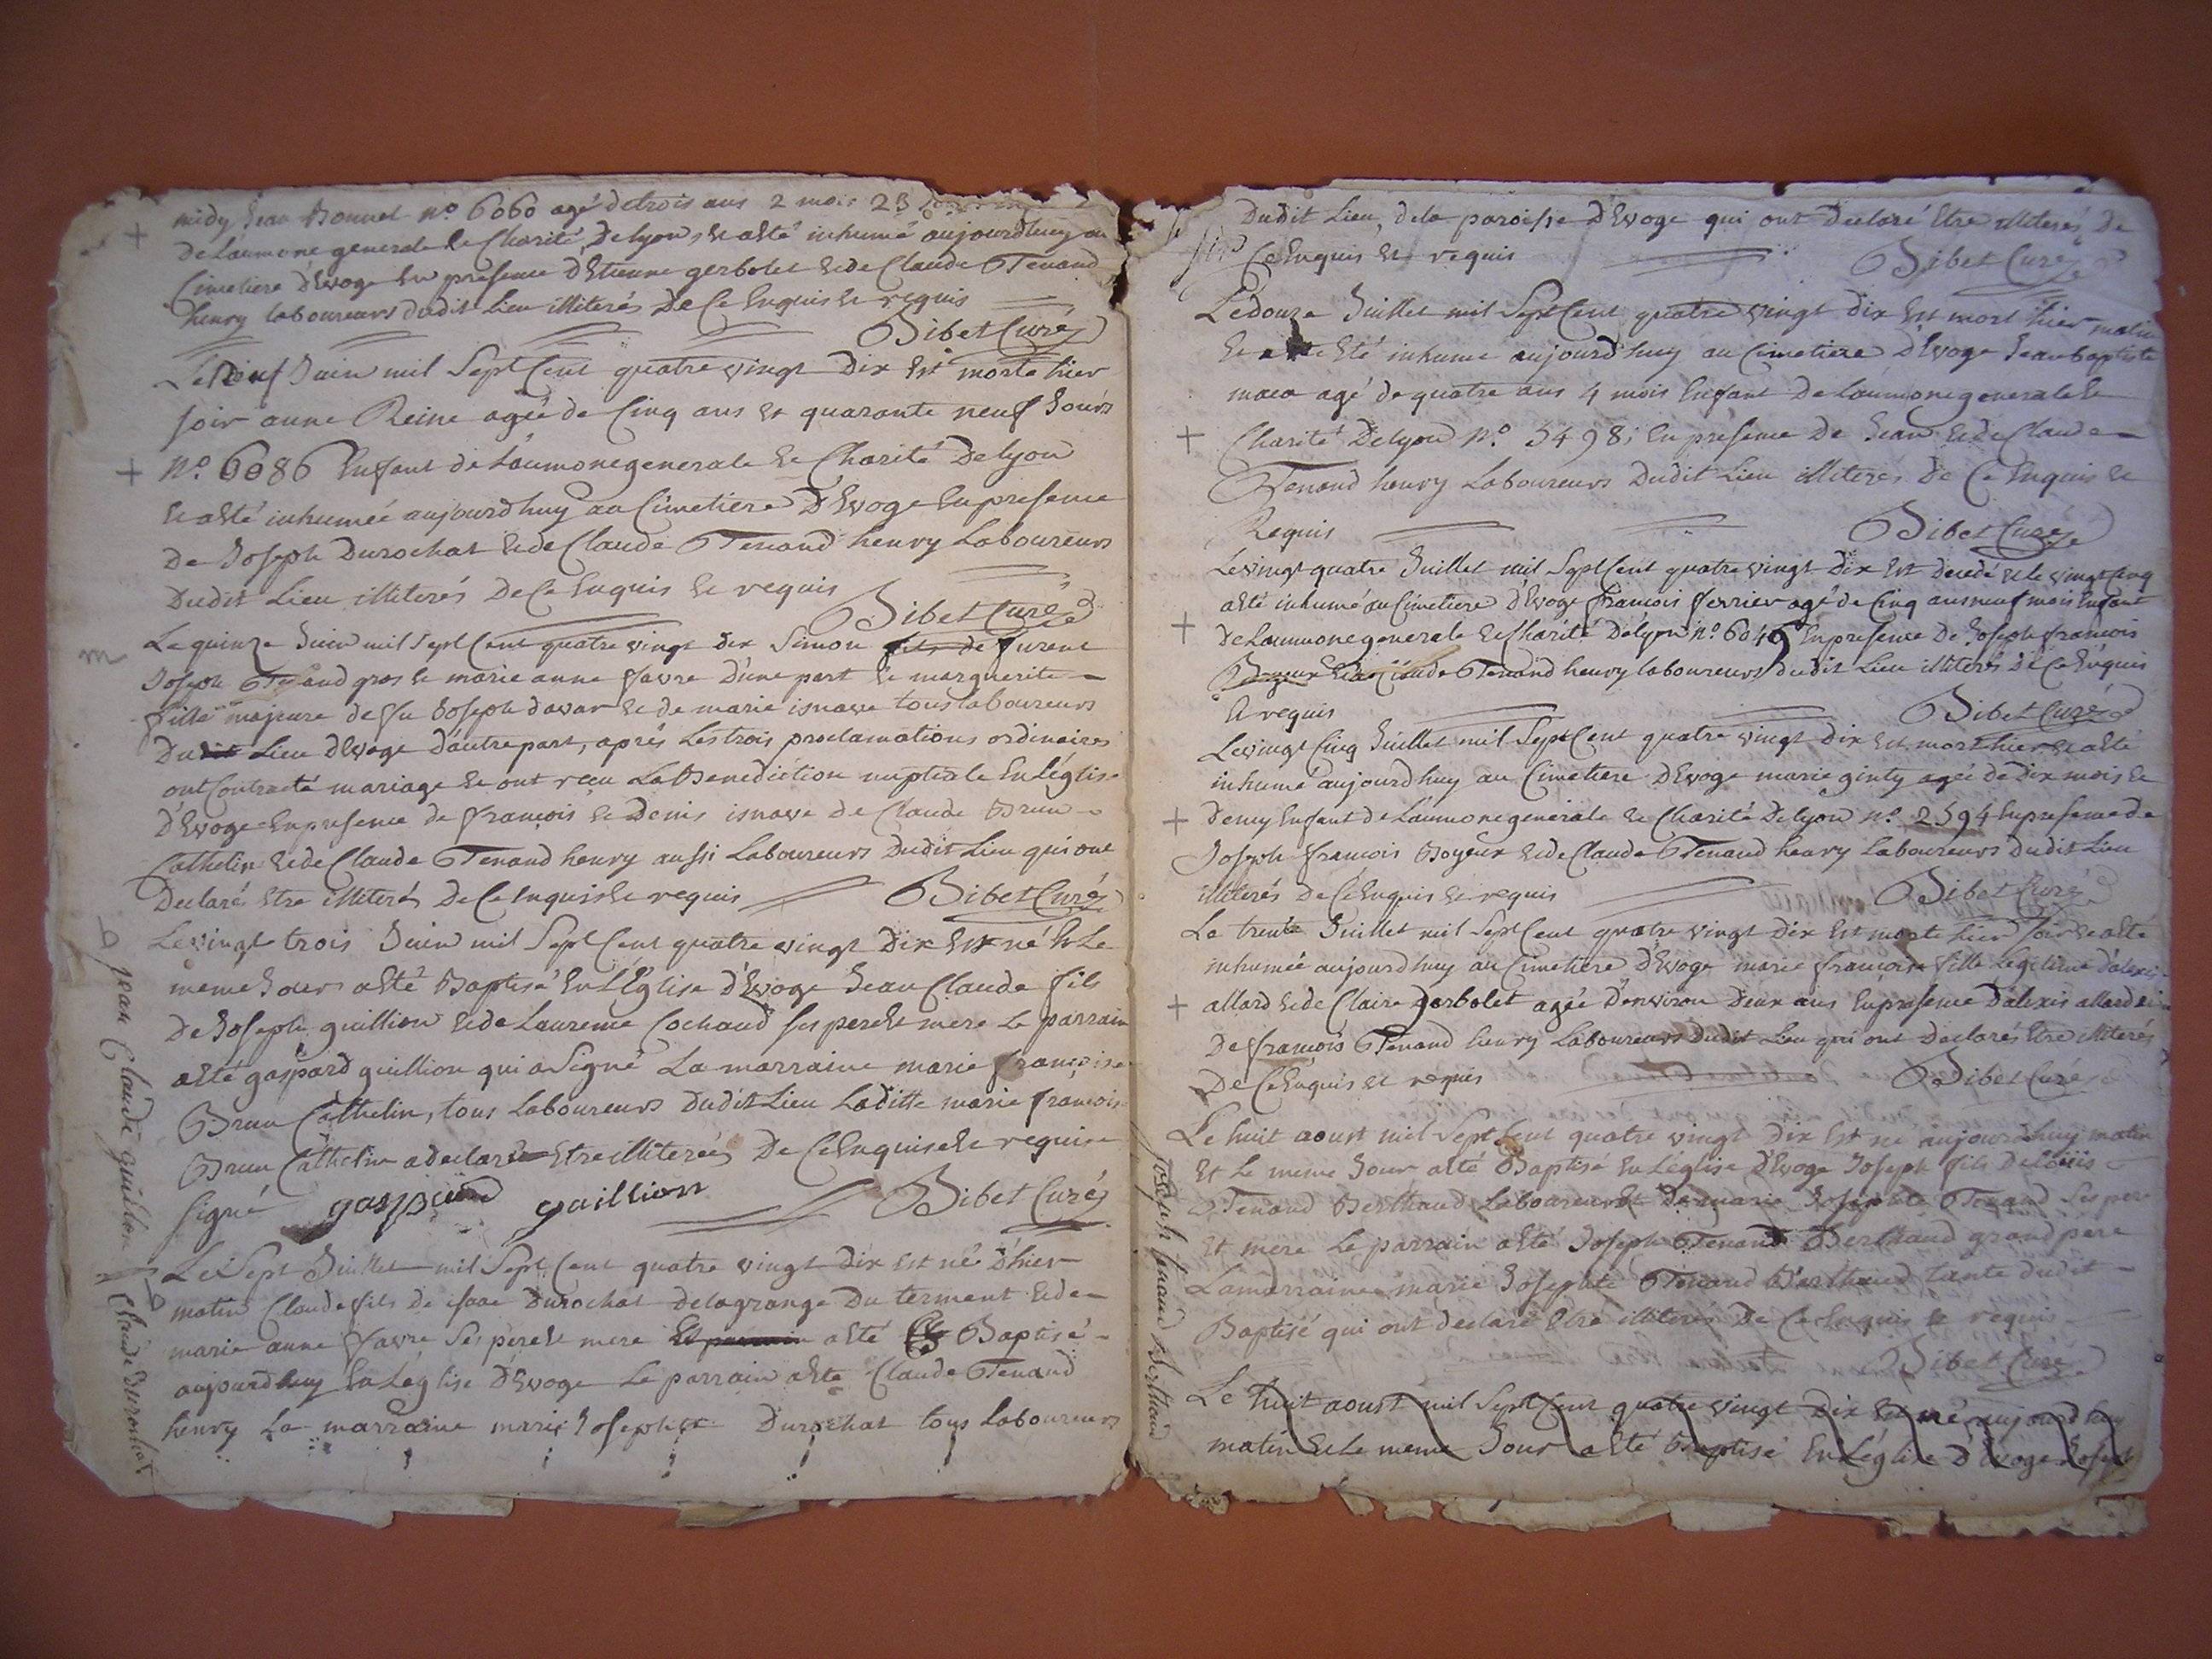 midy Jean Bonnet n.o 6060 agé de trois ans 2 mois 23
De Laumone generale & Charité De lyon, & a été inhumé aujourdhuy au
Cimetiere d'Evoge En presence d'Etienne gerbolet & de Claude Tenand
henry laboureurs dudit Lieu illiterés De Ce Enquis & requis
Bibet Curé
Le neuf Juin mil Sept Cent quatre vingt Dix Est morte hier
soir anne Reine agée de Cinq ans & quarante neuf Jours
N.o 6086 Enfant de Laumone generale & Charité De lyon
& a été inhumée aujourdhuy au Cimetiere D'Evoge En presence
De Joseph Durochat & de Claude Tenand henry Laboureurs
Dudit Lieu illiterés De Ce Enquis & requis
Bibet Curé
Le quinze Juin mil Sept Cent quatre vingt dix Simon fils de furent
m
Joseph Tenand gros & marie anne favre D'une part & marguerite
fille majeure de fu Joseph davar & de marie isnave tous laboureurs
Dudit Lieu d'Evoge D'autre part, aprés Les trois proclamations ordinaires
ont Contracté mariage & ont reçu La Benediction nuptiale En Léglise
d'Evoge En presence de françois & Denis isnave de Claude Brun
Cathelin & de Claude Tenand henry aussi Laboureurs Dudit Lieu qui ont
Declaré Etre illiterés De Ce Enquis & requis Bibet Curé
Le vingt trois Juin mil Sept Cent quatre vingt Dix Est né & Le
meme Jour a été Baptisé En L'Eglise d'Evoge Jean Claude fils
De Joseph guillion & de Laurence Cochaud ses pere & mere Le parrain
a été gaspard guillion qui a Signé La marraine marie françoise
Brun Cathelin, tous Laboureurs Dudit Lieu Laditte marie françoise
Brun Cathelin a declaré Etre illiterée De Ce Enquise & requise
Signé gaspard guillion Bibet Curé
b jean Claude guillon
Le Sept Juillet mil Sept Cent quatre vingt Dix Est né D'hier
matin Claude fils de isaac Durochat De la grange Du terment & de
marie anne favre Ses pere & mere Et parrain a été Baptisé
aujourdhuy En Léglise d'Evoge Le parrain a été Claude Tenand
henry La marraine marie Josephte Durochat tous Laboureurs
b Claude Durochat
Dudit Lieu, de la paroisse D'Evoge qui ont Declaré Etre illiterés De
Ce Enquis & requis Bibet Curé
Le douze Juillet mil Sept Cent quatre vingt Dix Est mort hier matin
& a été inhumé aujourd'huy au Cimetiere D'Evoge Jean baptiste
agé de quatre ans 4 mois Enfant De Laumone generale &
Charité De lyon N.o 5498; En presence De Jean & de Claude
Tenand henry Laboureurs Dudit Lieu illiterés De Ce Enquis &
Requis Bibet Curé
Le vingt quatre Juillet mil Sept Cent quatre vingt Dix Est decedé & Le vingt Cinq
a été inhumé au Cimetiere D'Evoge françois ferrier agé de Cinq ans neuf mois Enfant
de Laumone generale & Charité De lyon n.o 6049 En presence De Joseph françois
Boyeux & de Claude Tenand henry laboureurs dudit Lieu illiterés De Ce Enquis
& requis Bibet Curé
Le vingt Cinq Juillet mil Sept Cent quatre vingt Dix Est mort hier & a été
inhumé aujourd'huy au Cimetiere D'Evoge marie ginty agée de Dix mois &
Demy Enfant de Laumone generale & Charité De lyon n.o 2594 En presence de
Joseph françois Boyeux & de Claude Tenand henry Laboureurs Dudit Lieu
illiterés De Ce Enquis & requis Bibet Curé
Le trente Juillet mil Sept Cent quatre vingt Dix Est morte hier Soir & a été
inhumée aujourd'huy au Cimetiere D'Evoge marie françoise fille Legitime d'alexis
allard & de Claire Gerbolet agée D'environ Deux ans En presence D'alexis allard &
De françois Tenand henry Laboureurs Dudit Lieu qui ont Declarés Etre illiterés
De Ce Enquis et requis Bibet Curé
Le huit aoust mil Sept Cent quatre vingt Dix Est né aujourdhuy matin
Et Le meme Jour a été Baptisé En Léglise D'Evoge Joseph fils De Loüis
Tenand Berthaud Laboureur & De marie Josephte Tenand Ses pere
et mere Le parrain a été Joseph Tenand Berthaud grand pere
La marraine marie Josephte Tenand Berthaud tante dudit
Baptisé qui ont declaré Etre illiterés De Ce Enquis & requis
Bibet Curé
joseph tenand Berthaud
Le huit aoust mil Sept Cent quatre vingt Dix Est né aujourdhuy
matin & Le meme Jour a été baptisé En Léglise D'Evoge Joseph